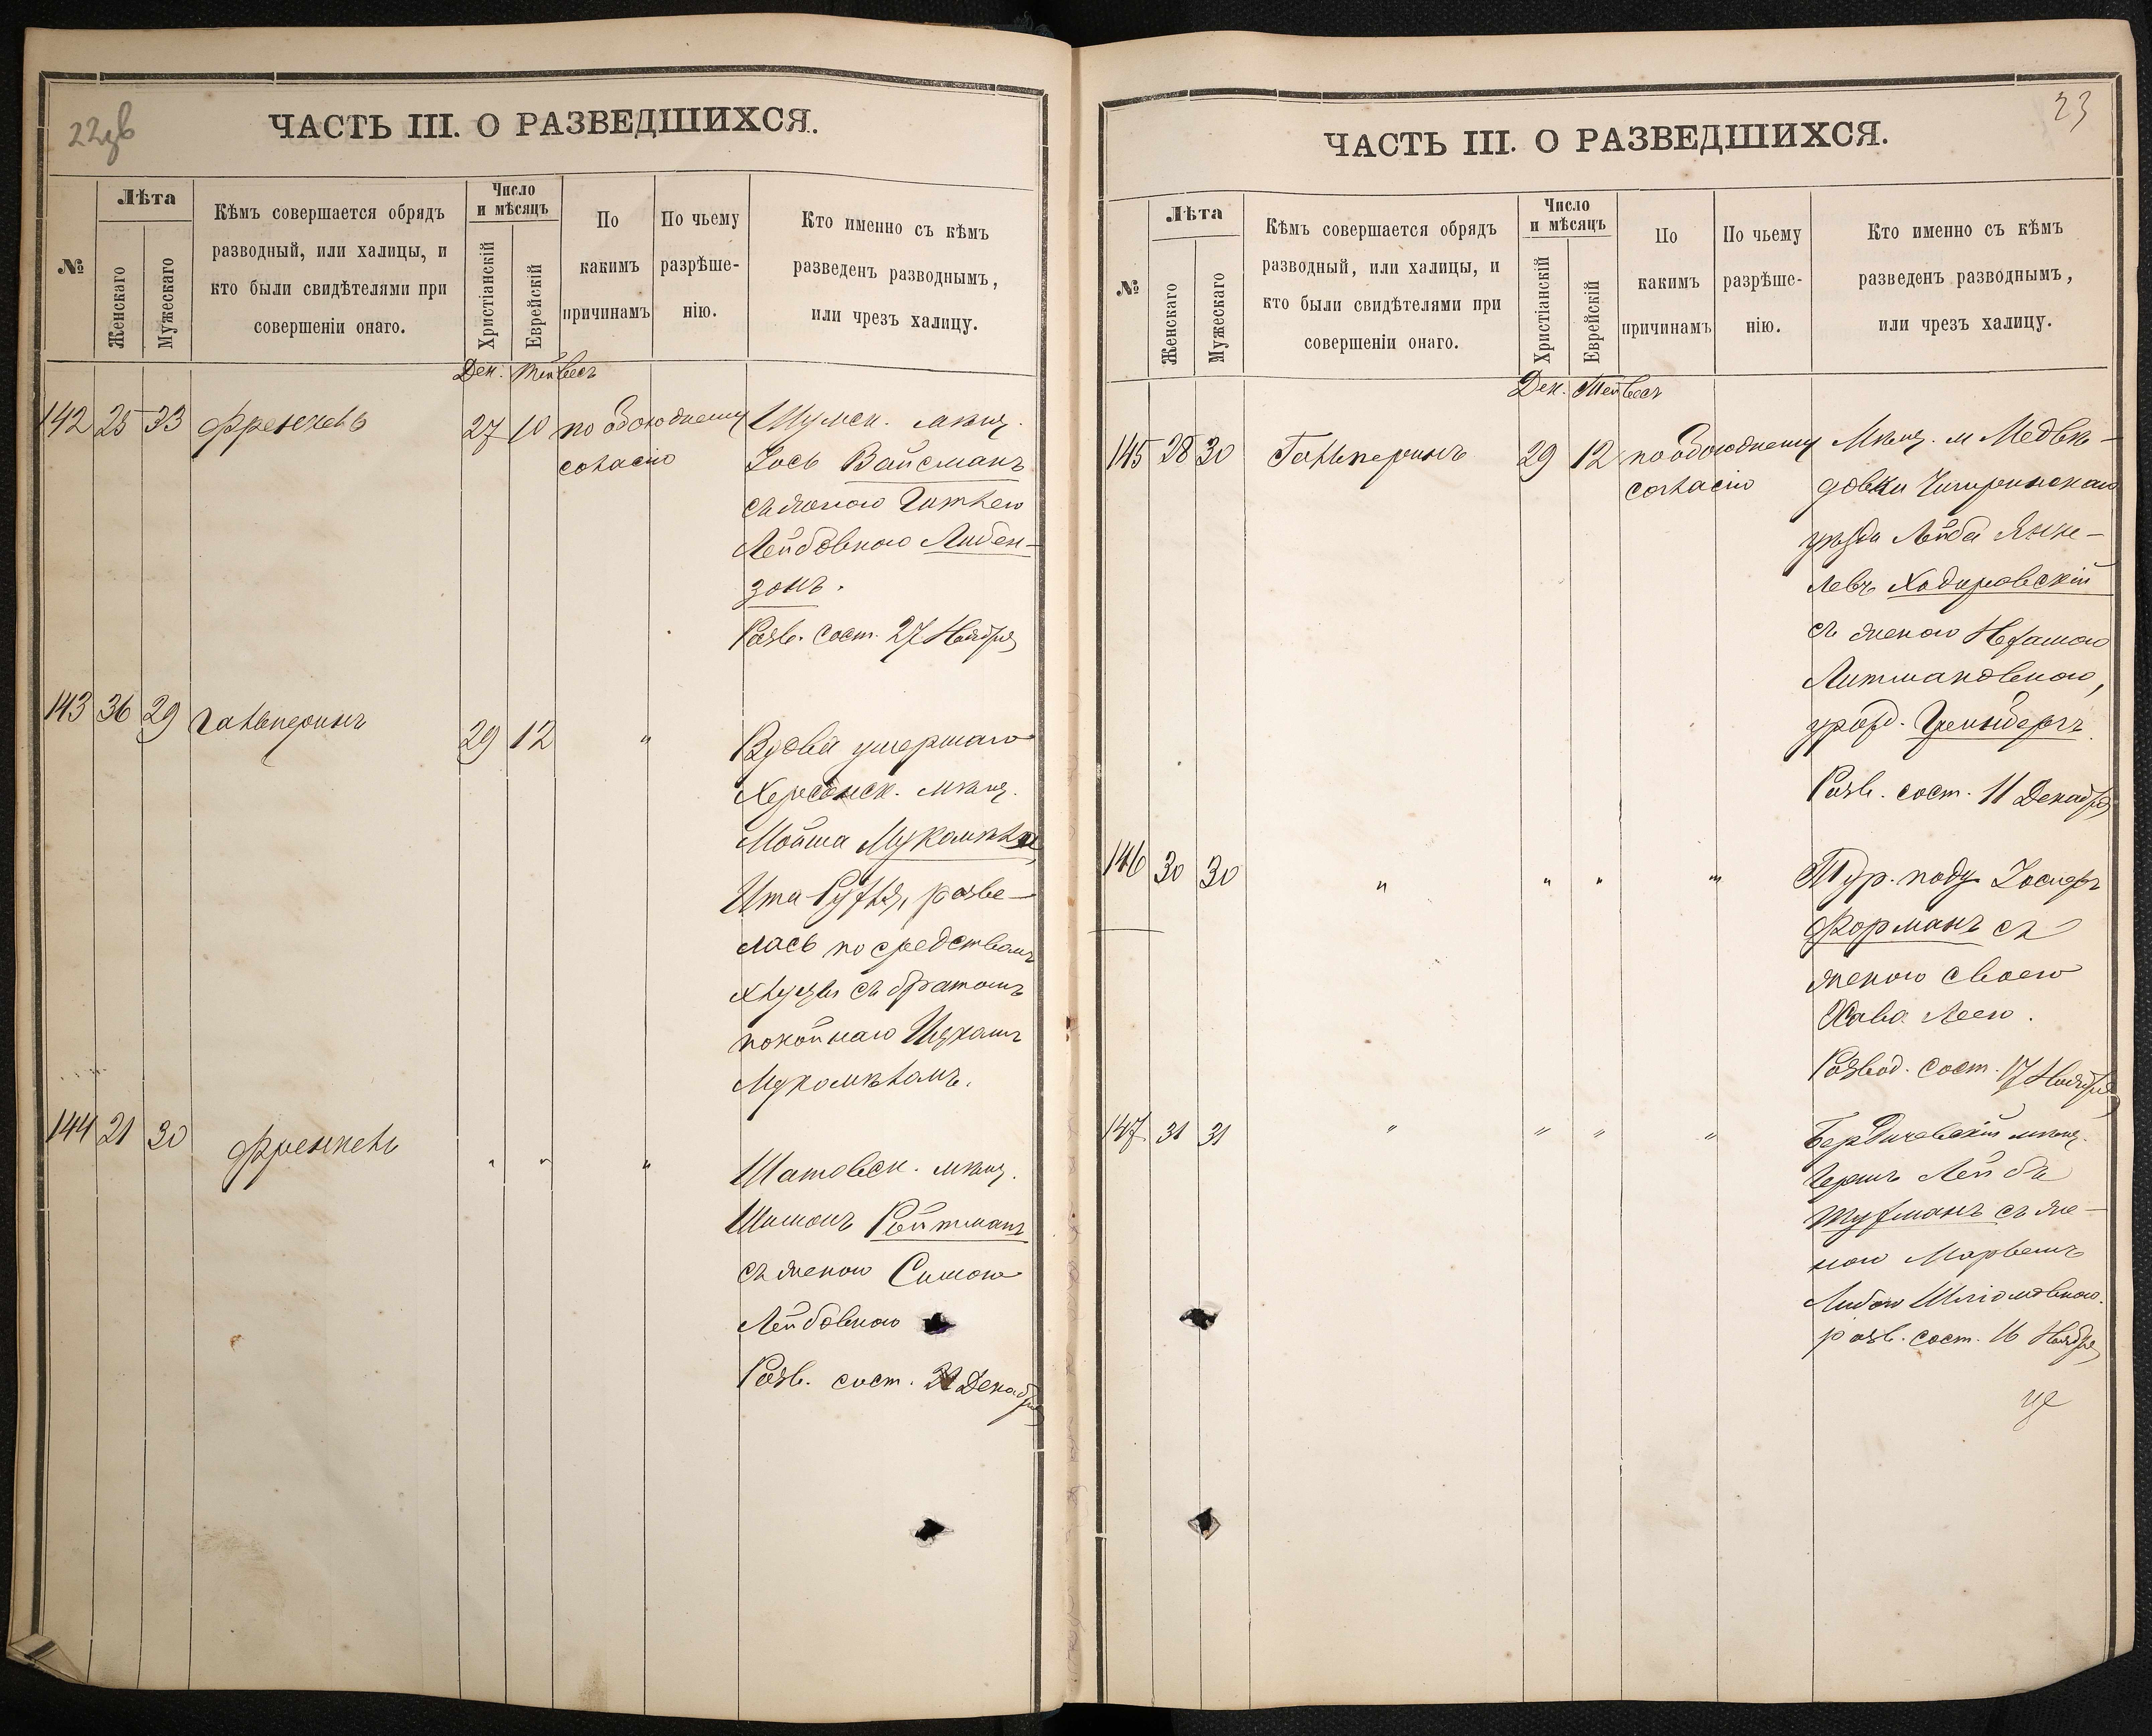 22об
ЧАСТЬ III. О РАЗВЕДШИХСЯ.
№
Лѣта
Женскаго
Мужескаго
Кѣмъ совершается обрядъ
разводный, или халицы, и
кто были свидѣтелями при
совершеніи онаго.
Число
и мѣсяцъ
Христіанскій
Еврейскій
По
какимъ
причинамъ
По чьему
разрѣше-
нію.
Кто именно съ кѣмъ
разведенъ разводнымъ,
или чрезъ халицу.
Дек. Тейвесъ
142 25 33 Френкель 27 10 по обоюдному Шумск. мѣщ.
согласію Іось Вайсманъ
съ женою Гитлею
Лейбовною Либен-
зонъ.
Разв. сост. 27 Ноября
143 36 29 Гальперинъ 29 12 " Вдова умершаго
Херсонск. мѣщ.
Мойша
Ита Рухля, разве-
лась посредствомъ
халицы съ братомъ
покойнаго
144 21 30 Френкель " " " Шатовск. мѣщ.
Шимонъ Ройтманъ
съ женою Симою
Лейбовною
Разв. сост. Декабря
23
ЧАСТЬ III. О РАЗВЕДШИХСЯ.
№
Лѣта
Женскаго
Мужескаго
Кѣмъ совершается обрядъ
разводный, или халицы, и
кто были свидѣтелями при
совершеніи онаго.
Число
и мѣсяцъ
Христіанскій
Еврейскій
По
какимъ
причинамъ
По чьему
разрѣше-
нію.
Кто именно съ кѣмъ
разведенъ разводнымъ,
или чрезъ халицу.
Дек. Тейвесъ
145 28 30 Гальперинъ 29 12 по обоюдному Мѣщ. м Медвѣ-
согласію довки Чигиринскаго
уѣзда Лейба Янке-
левъ Ходоровскій
съ женою Нехамою
Литмановною,
урожд. Гринбергъ.
Разв. сост. 11 Декабря
146 30 30 " " " " Тур. подд. Іосифъ
Форманъ съ
женою своею
Хава Леею.
Развод. сост. 17 Ноября
147 31 31 " " " " Бердичевскій мѣщ.
Гершъ Лейбъ
съ же-
ною
Либою Шліомовною.
разв. сост. 16 Ноября